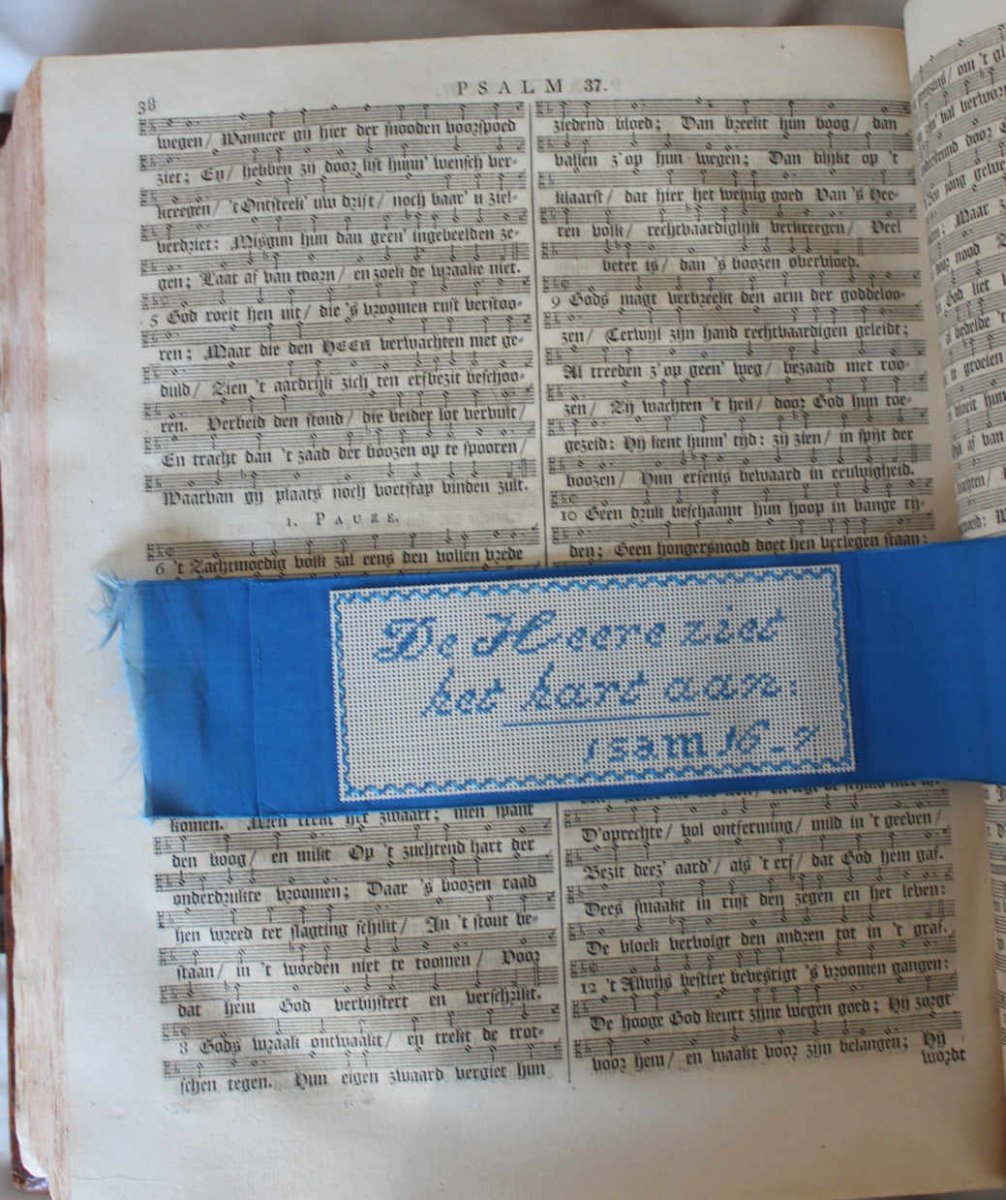 38
PSALM 37.
wegen/ Wanneer gij hier der snooden voorspoed
ziet; En/ hebben zij door list hunn' wensch ver-
kreegen/ 't Ontsteek' uw drift/ noch baar' u ziel-
verdriet: Misgun hun dan geen' ingebeelden ze-
gen; Laat af van toorn/ en zoek de wraake niet.
5 God roeit hen uit/ die 's vroomen rust verstoo-
ren; Maar die den HEER verwachten met ge-
duld/ Zien 't aardrijk zich ten erfbezit beschoo-
ren. Verbeid den stond/ die beider lot vervult/
En tracht dan 't zaad der boozen op te spooren/
Waarvan gij plaats noch voetstap vinden zult.
1. PAUZE.
6 't Zachtmoedig volk zal eens den vollen vrede
komen. Men
zwaart; men spant
den boog/ en mikt Op 't zuchtend hart der
onderdrukte vroomen; Daar 's boozen raad
hen wreed ter slagting schikt/ In 't stout be-
staan/ in 't woeden niet te toomen/ Voor
dat hem God verbijstert en verschrikt.
8 Gods wraak ontwaakt/ en trekt de trot-
schen tegen. Hun eigen zwaard vergiet hun
ziedend bloed; Dan breekt hun boog/ dan
vallen z' op hun wegen; Dan blijkt op 't
klaarst/ dat hier het weinig goed Van 's Hee-
ren volk/ rechtvaardiglijk verkreegen/ Veel
beter is/ dan 's boozen overvloed.
9 Gods magt verbreekt den arm der goddeloo-
zen/ Terwijl zijn hand rechtvaardigen geleidt;
Al treeden z' op geen' weg/ bezaaid met roo-
zen/ Zij wachten 't heil/ door God hun toe-
gezeid: Hij kent hunn' tijd: zij zien/ in spijt der
boozen/ Hun erfenis bewaard in eeuwigheid.
10 Geen druk beschaamt hun hoop in bange tij-
den; Geen hongersnood doet hen verlegen staan:
D'oprechte/ vol ontferming/ mild in 't geeven/
Bezit deez' aard'/ als 't erf/ dat God hem gaf.
Dees smaakt in rust den zegen en het leven:
De vloek vervolgt den andren tot in 't graf.
12 't Alwijs bestier bevestigt 's vroomen gangen:
De hooge God keurt zijne wegen goed; Hij zorgt
voor hem/ en waakt voor zijn belangen; Hij
wordt
De Heere ziet
het hart aan:
1 sam 16-7